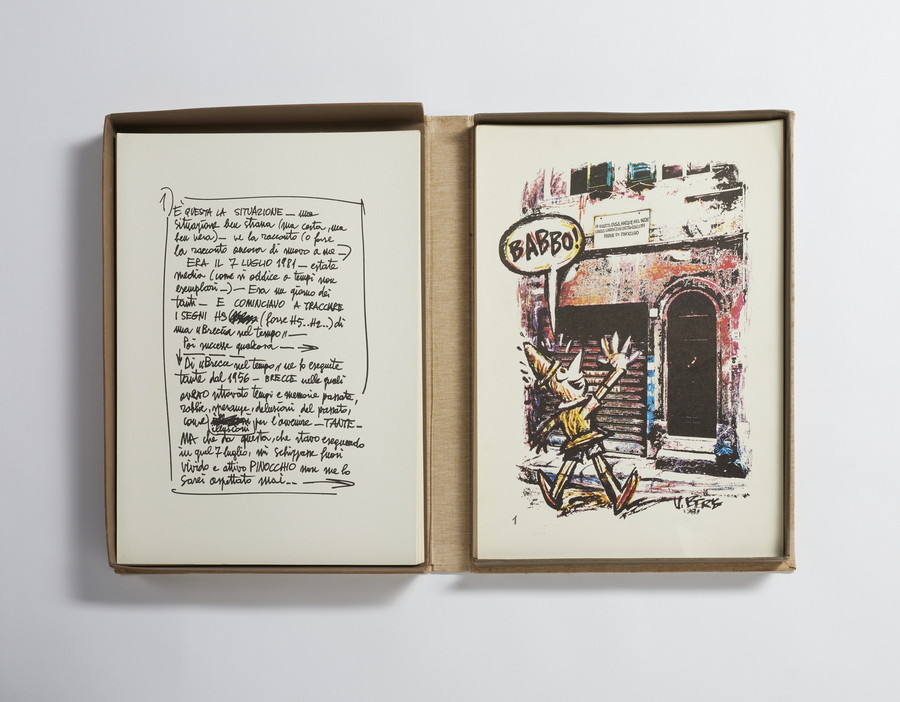 1)
È QUESTA LA SITUAZIONE — una
situazione ben strana (ma certa, ma
ben vera) — ve la racconto (o forse
la racconto ancora di nuovo a me —)
ERA IL 7 LUGLIO 1981 — estate
media (come si addice a tempi non
esemplari —) — Era un giorno dei
tanti — E COMINCIAVO A TRACCIARE
I SEGNI H3 (forse H5..H2..) di
una "Breccia nel tempo" —
Poi successe qualcosa —
Di "Brecce nel tempo" ne ho eseguite
tante dal 1956 — BRECCE nelle quali
avevo ritrovato tempi e memorie passate,
rabbie, speranze, delusioni del passato,
come illusioni per l'avvenire — TANTE —
MA che da questa, che stavo eseguendo
in quel 7 luglio, mi schizzasse fuori
vivido e attivo PINOCCHIO non me lo
sarei aspettato mai...
BABBO!
IN QUESTA CASA, ANCHE
PADRE DI PINOCCHIO
1